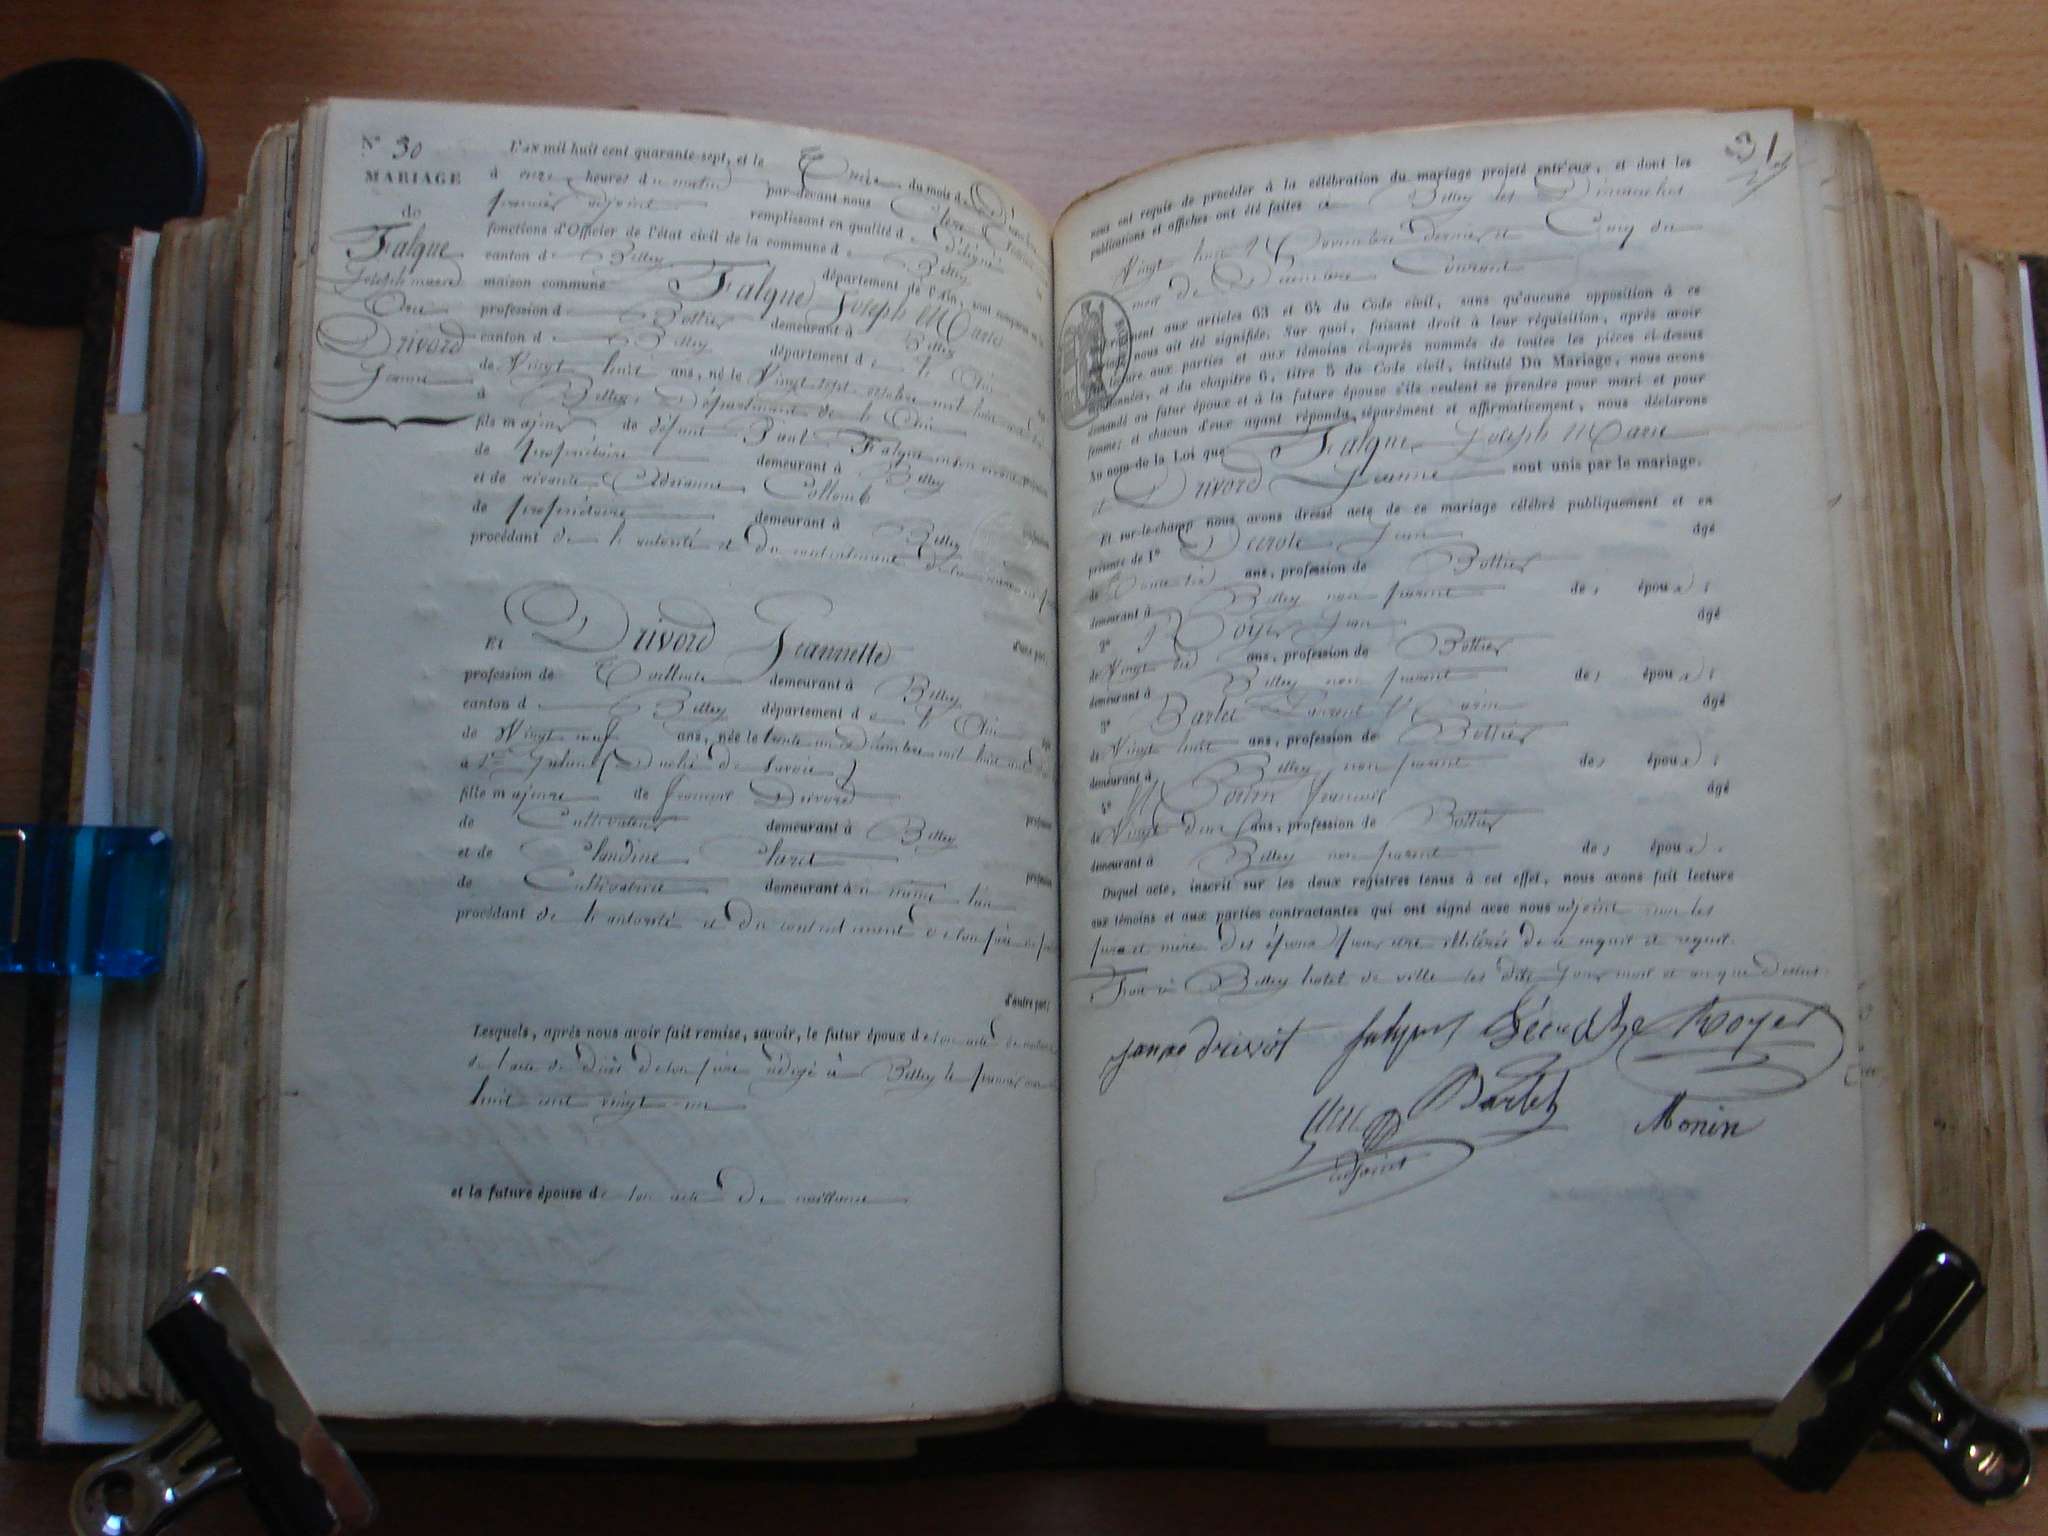 N° 30
MARIAGE
de
Falque
Joseph marie
Avec
Drivord
Jeanne
L'an mil huit cent quarante-sept, et le Onze du mois de
à onze heures du matin par-devant nous
premier adjoint remplissant en qualité de délégué
fonctions d'Officier de l'état civil de la commune de Belley
canton de Belley département de l'Ain, sont comparus en la
maison commune Falque Joseph Marie
profession de Bottier demeurant à Belley
canton de Belley département de l'Ain
de Vingt huit ans, né le Vingt sept octobre mil huit cent
à Belley, Département de l'Ain
fils majeur de défunt Falque en son vivant
de propriétaire demeurant à Belley
et de vivante Collomb
de propriétaire demeurant à Belley
procédant de l'autorité et du consentement de
d'une part;
Et Drivord Jeannette
profession de demeurant à Belley
canton de Belley département de l'Ain
de Vingt neuf ans, née le trente un Décembre mil huit cent
à St (Duché de Savoie)
fille majeure de françois Drivord profession
de Cultivateur demeurant à Belley
et de Claudine profession
de Cultivatrice demeurant à même lieu
procédant de l'autorité et du consentement de son père
d'autre part;
Lesquels, après nous avoir fait remise, savoir, le futur époux de son acte de
de l'acte de Décès de son père rédigé à Belley le premier
huit cent vingt un
et la future épouse de son acte de naissance
31
nous ont requis de procéder à la célébration du mariage projeté entr'eux, et dont les
publications et affiches ont été faites à Belley les Dimanches
Vingt huit Novembre dernier et Cinq du
mois de Décembre Courant
conformément aux articles 63 et 64 du Code civil, sans qu'aucune opposition à ce
mariage nous ait été signifiée. Sur quoi, faisant droit à leur réquisition, après avoir
lecture aux parties et aux témoins ci-après nommés de toutes les pièces ci-dessus
mentionnées, et du chapitre 6, titre 5 du Code civil, intitulé Du Mariage, nous avons
demandé au futur époux et à la future épouse s'ils veulent se prendre pour mari et pour
femme; et chacun d'eux ayant répondu séparément et affirmativement, nous déclarons
Au nom de la Loi que Falque Joseph Marie
et Drivord Jeanne sont unis par le mariage.
Et sur-le-champ nous avons dressé acte de ce mariage célébré publiquement et en
présence de 1° Jean âgé
de ans, profession de Bottier
demeurant à Belley non parent de, époux;
2° Royer Jean âgé
de Vingt ans, profession de Bottier
demeurant à Belley non parent de, époux;
3° Bartet Laurent âgé
de Vingt huit ans, profession de Bottier
demeurant à Belley non parent de, époux;
4° Monin françois âgé
de Vingt deux ans, profession de Bottier
demeurant à Belley non parent de, époux.
Duquel acte, inscrit sur les deux registres tenus à cet effet, nous avons fait lecture
aux témoins et aux parties contractantes qui ont signé avec nous adjoint non les
père et mère des époux pour être illitérés de ce enquis et requis.
Fait à Belley hotel de ville les dits jour mois et an que dessus
janne drivot Royer
Bartet Monin
adjoint